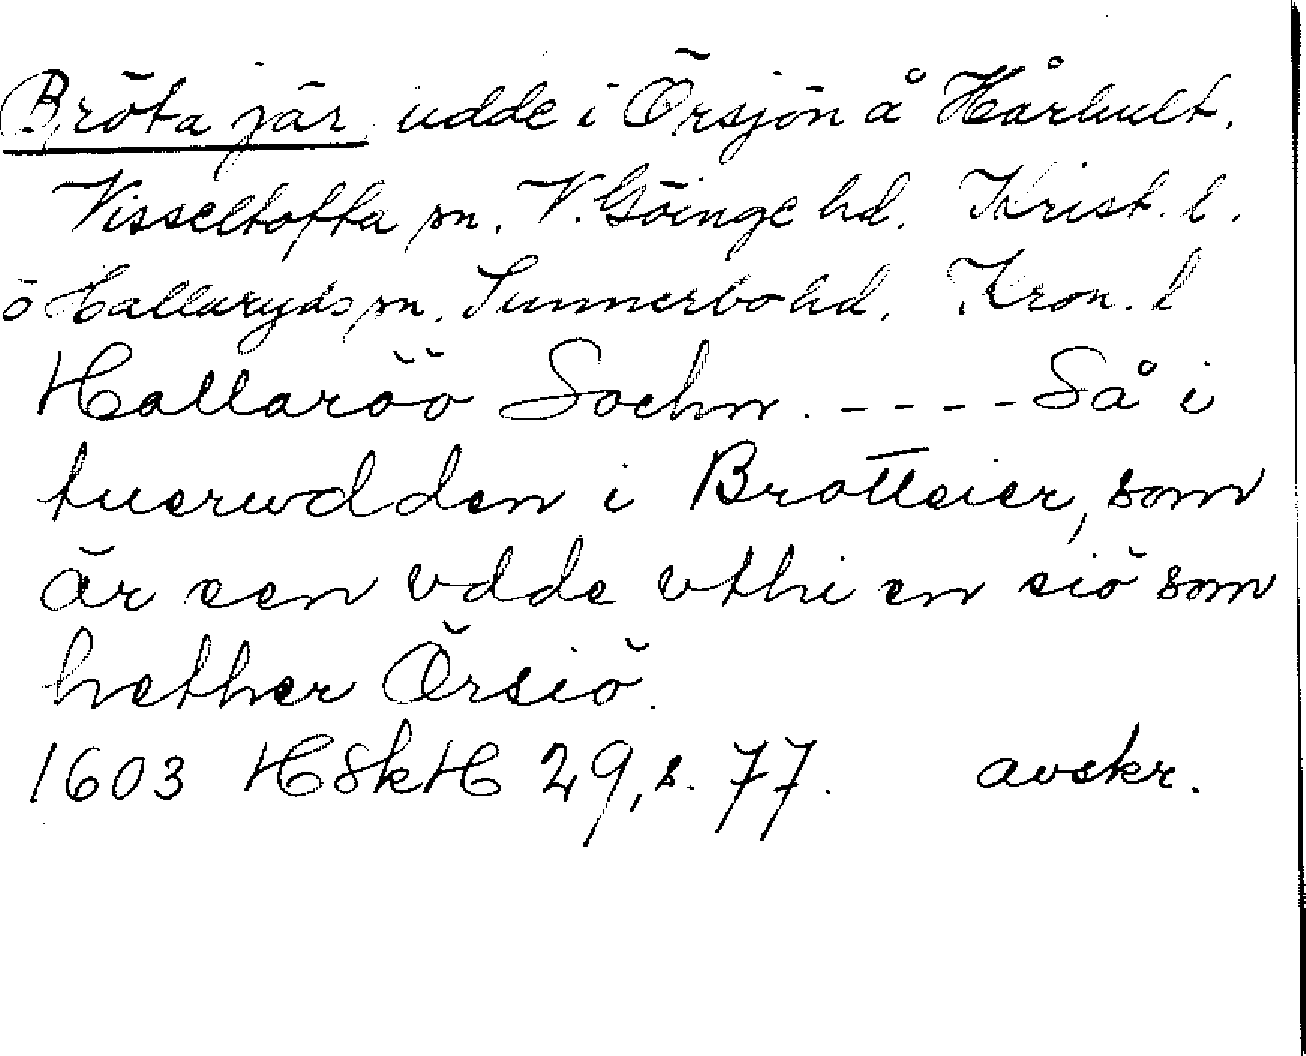 Bröta jär udde i Örsjön å Hårhult.
Visseltofta sn. V. Göinge hd. Krist. l.
o Hallaryds sn. Sunnerbo hd. Kron. l
Hallaröö Sochn. - - - - Så i
tuerwdden i Brotteier, som
är een vdde vthi en siö som
hether Örsiö.
1603 HSkH 29, s. 77. avskr.